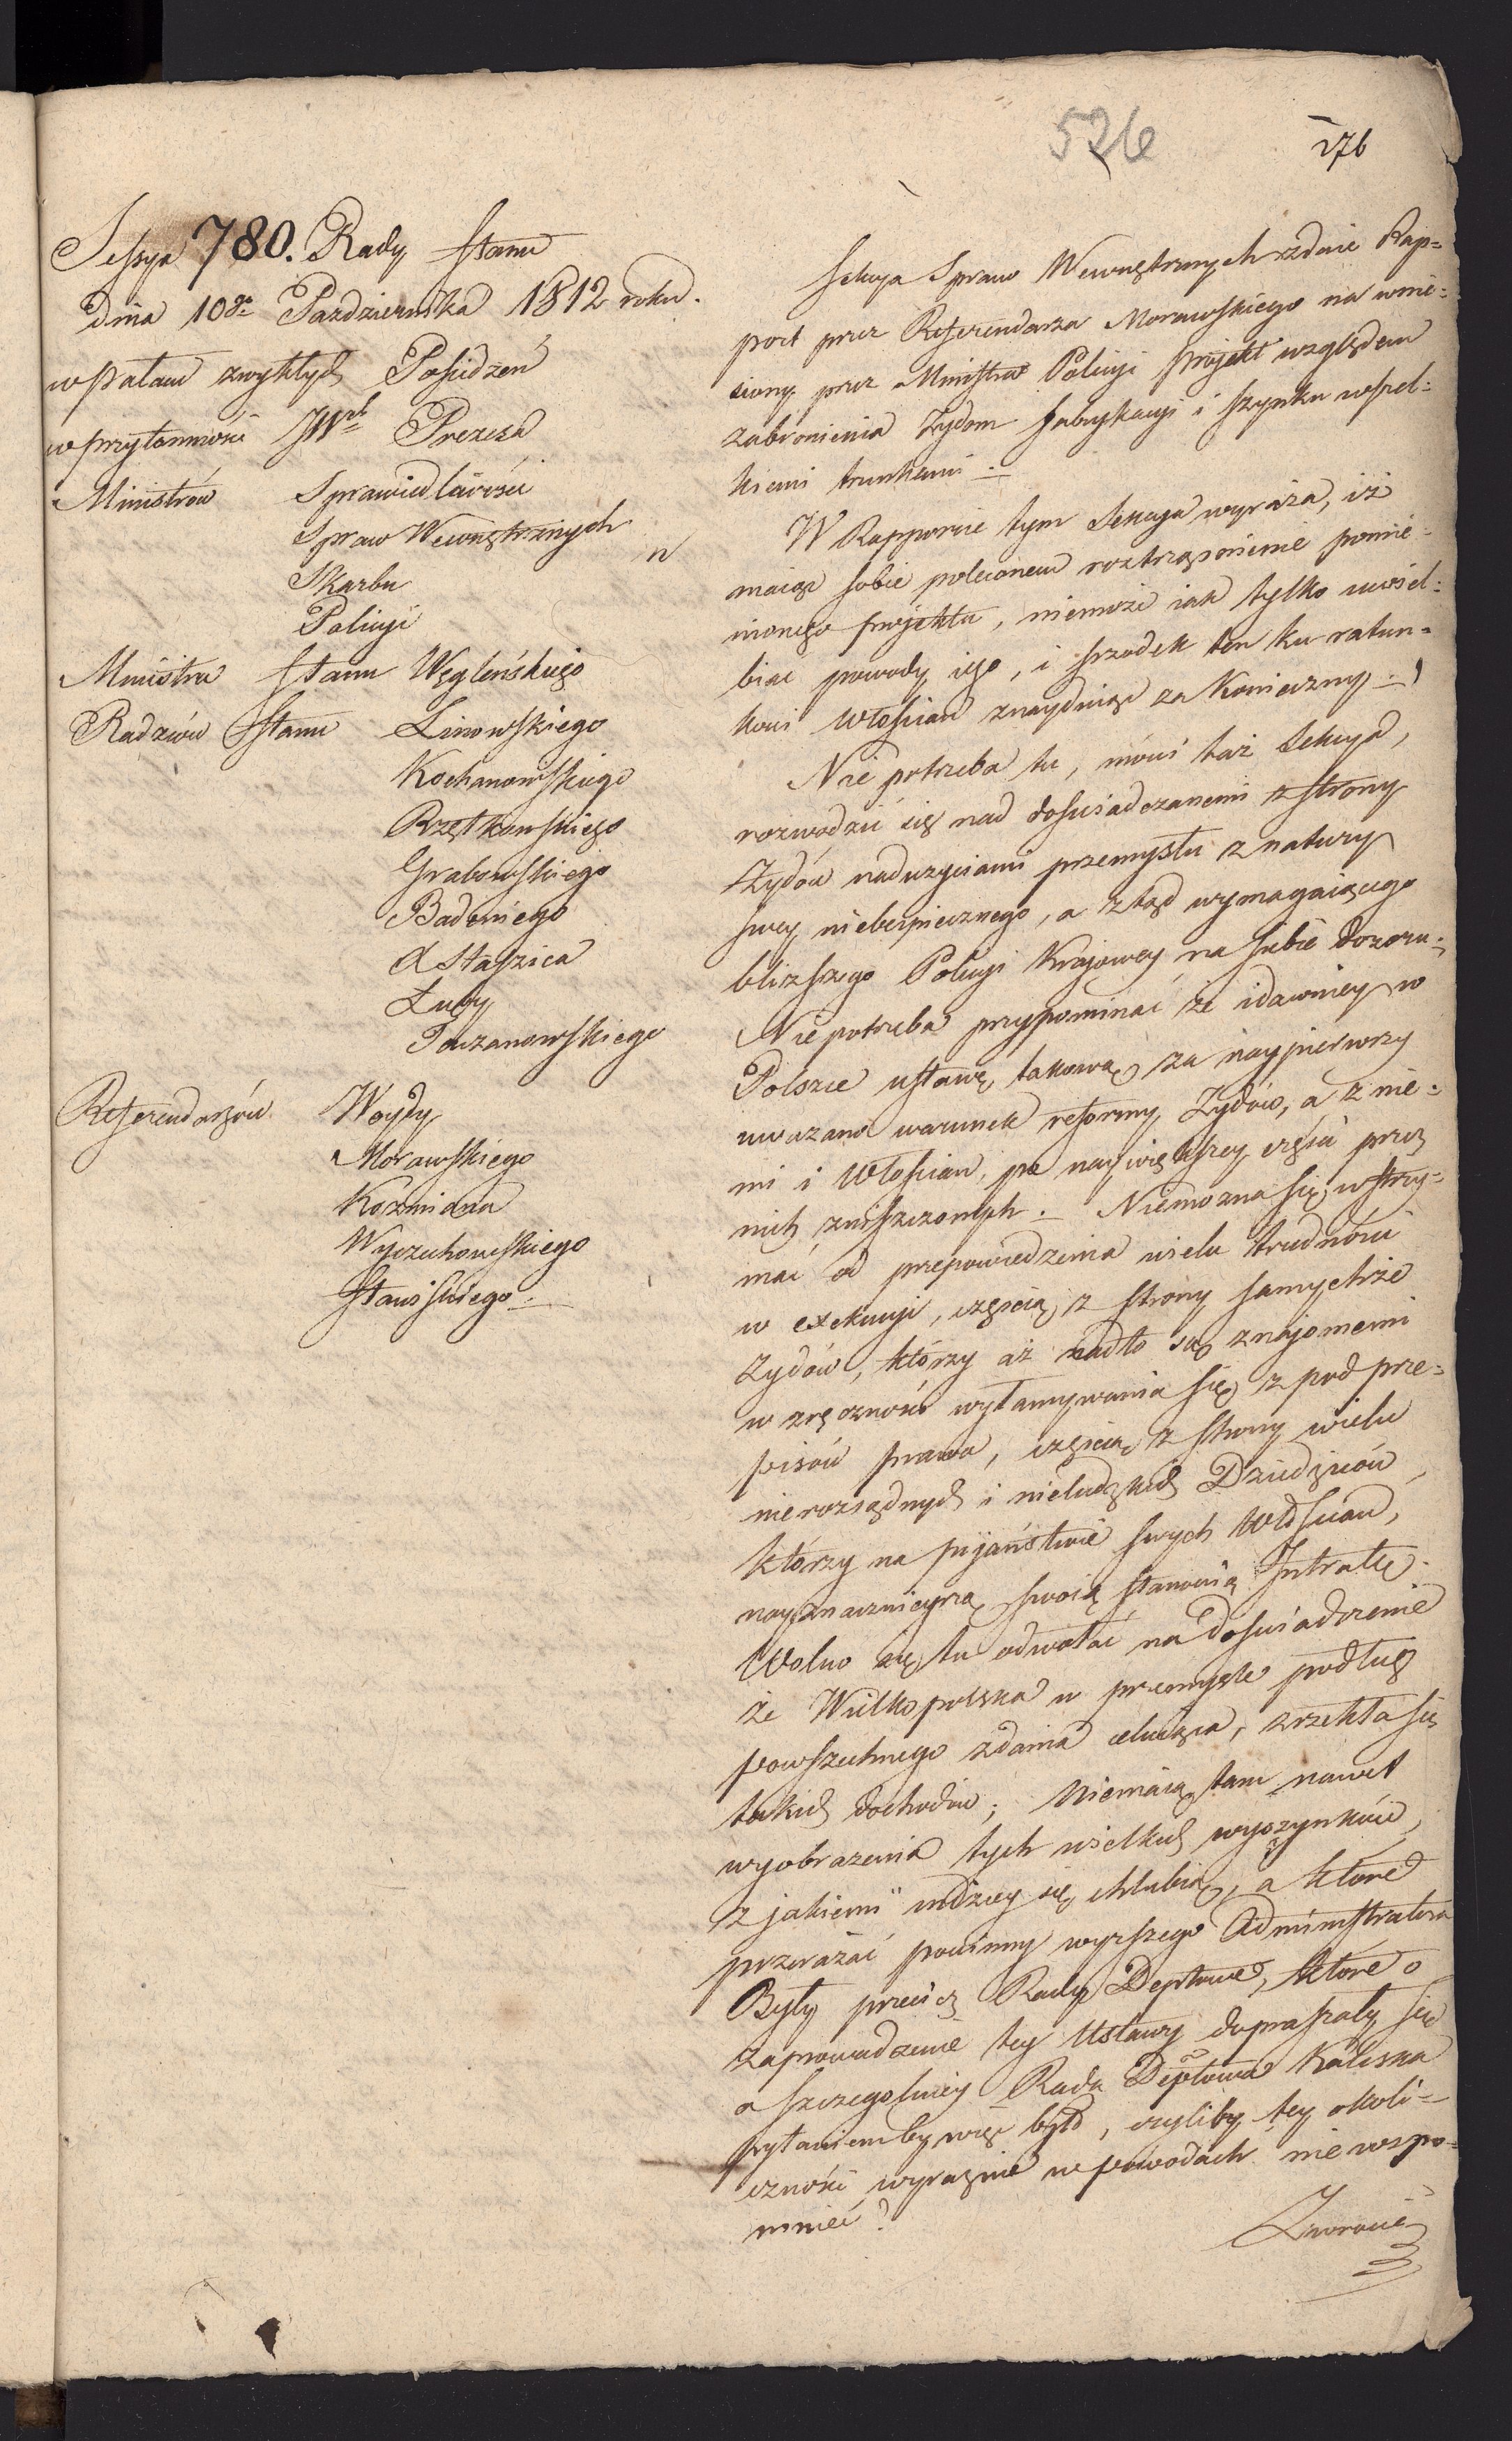 526
276
Sessya 780. Rady Stanu
dnia 10go Pazdziernika 1812 roku.
w Pałacu zwykłych Posiedzeń
w przytomności JWch Prezesa
Ministrów Sprawiedliwości
Spraw Wewnętrznych
Skarbu
Policyi
Ministra Stanu Węgleńskiego
Radzców Stanu Linowskiego
Kochanowskiego
Rzętkowskiego
Grabowskiego
Badeniego
X Staszica
Łuby
Referendarzów Woydy
Morawskiego
Kozmiana
Wyczechowskiego
Stawiskiego.
Sekcya Spraw Wewnętrznych zdaie Rap=
port przez Referendarza Morawskiego na wnie=
siony przez Ministra Policyi projekt względem
zabronienia Zydom fabrykacyi i szynku wszel=
kiemi trunkami.
W Rapporcie tym Sekcya wyraża, iż
maiąc sobie poleconem roztrząśnienie pomie=
nionego projektu, niemoże iak tylko uwiel=
biać powody iego, i szrodek ten ku ratun=
kowi Włościan znayduiąc za konieczny.
Nie potrzeba tu, mówi taż Sekcya,
rozwodzić się nad doświadczanemi z strony
Zydów nadużyciami przemysłu z natury
swey niebespiecznego, a ztąd wymagaiącego
blizszego Policyi Krajowey na siebie dozoru.
Nie potrzeba przypominać że i dawniey w
Polszcze ustawę takową za naypierwszy
uważano warunek reformy Zydów, a z nie=
mi i Włościan, po naywiększey części przez
nich zniszczonych. Niemożna się wstrzy=
mać od przepowiedzenia wielu trudności
w exekucyi, częścią z strony samychże
Zydów, którzy aż nadto są znajomemi
w zręczności wyłamywania się z pod prze=
pisów prawa, częścią z strony wielu
nierozsądnych i nieludzkich Dziedziców,
którzy na pijaństwie swych Włościan,
nayznacznieyszą swoią stanowią Intratę.
Wolno się tu odwołać na doświadczenie
że Wielkopolska w przemyśle podług
powszechnego zdania celuiąca, zrzekła się
takich dochodów; Niemaią tam nawet
wyobrażenia tych wielkich wyszynków,
z jakiemi indziey się chlubią, a które
przerażać powinny wyższego Administratora
Były przecież Rady Deptowe, które o
zaprowadzenie tey Ustawy dopraszały się
a szczególniey Rada Deptowa Kaliska
pytaniem by więc było, czyliby tey okoli=
czności wyraźnie w powodach nie wspo=
mnieć?